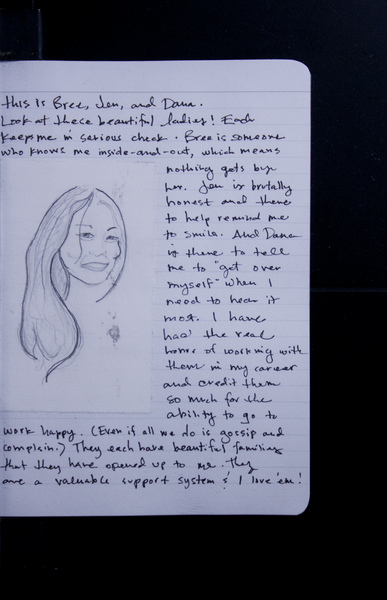 This is Bree, Jen, and Dana.
Look at these beautiful ladies! Each
keeps me in serious check. Bree is someone
who knows me inside-and-out, which means
nothing gets by
her. Jen is brutally
honest and there
to help remind me
to smile. And Dana
is there to tell
me to "get over
myself" when I
need to hear it
most. I have
had the real
honor of working with
them in my career
and credit them
so much for the
ability to go to
work happy. (Even if all we do is gossip and
complain.) They each have beautiful families
that they have opened up to me. They
are a valuable support system & I love 'em!